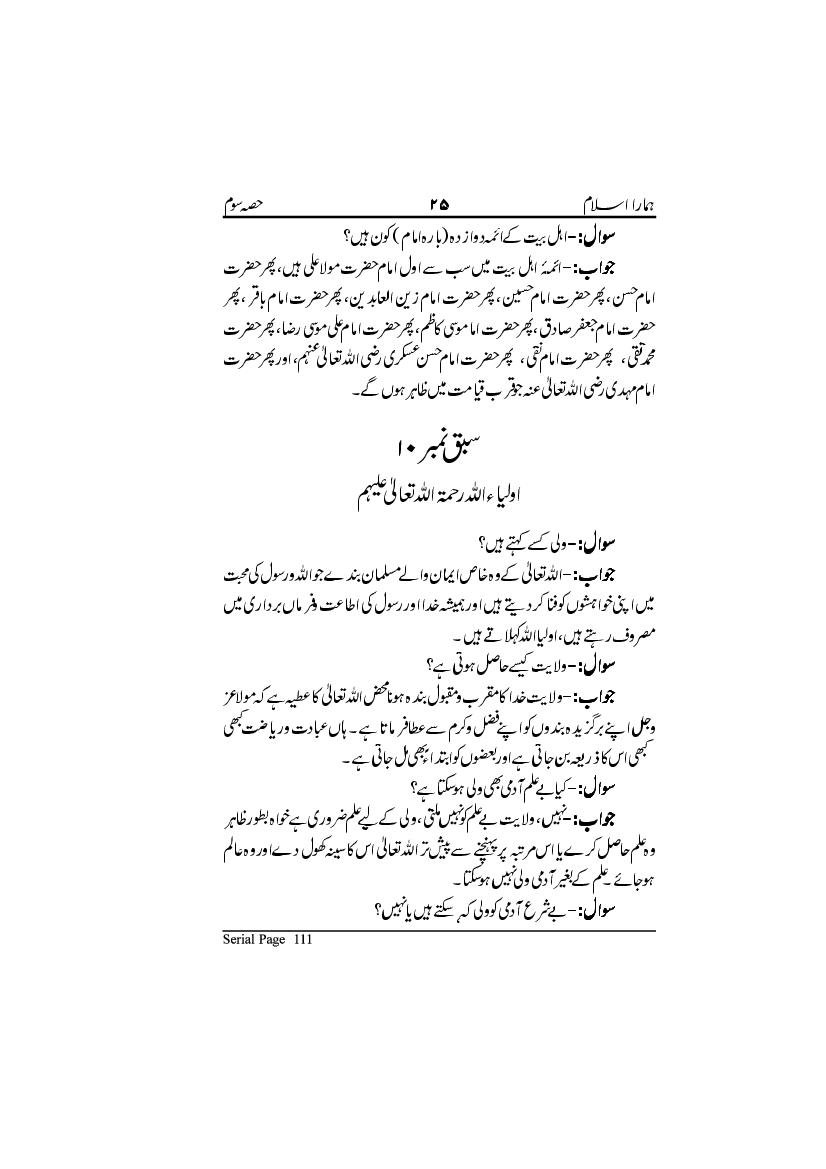 ہمارا اسلام ۲۵ حصہ سوم
سوال: -اہل بیت کے ائمہ دوازدہ (بارہ امام) کون ہیں؟
جواب: -ائمۂ اہل بیت میں سب سے اول امام حضرت مولا علی ہیں، پھر حضرت
امام حسن، پھر حضرت امام حسین، پھر حضرت امام زین العابدین، پھر حضرت امام باقر، پھر
حضرت امام جعفر صادق، پھر حضرت اما موسی کاظم، پھر حضرت امام علی موسی رضا، پھر حضرت
محمد تقی، پھر حضرت امام نقی، پھر حضرت امام حسن عسکری رضی اللہ تعالیٰ عنہم، اور پھر حضرت
امام مہدی رضی اللہ تعالیٰ عنہ جو قرب قیامت میں ظاہر ہوں گے۔
سبق نمبر ۱۰
اولیاء اللہ رحمۃ اللہ تعالیٰ علیہم
سوال: -ولی کسے کہتے ہیں؟
جواب: -اللہ تعالیٰ کے وہ خاص ایمان والے مسلمان بندے جو اللہ ورسول کی محبت
میں اپنی خواہشوں کو فنا کر دیتے ہیں اور ہمیشہ خدا اور رسول کی اطاعت وفرماں برداری میں
مصروف رہتے ہیں، اولیا اللہ کہلاتے ہیں۔
سوال: -ولایت کیسے حاصل ہوتی ہے؟
جواب: -ولایت خدا کا مقرب ومقبول بندہ ہونا محض اللہ تعالیٰ کا عطیہ ہے کہ مولا عز
وجل اپنے برگزیدہ بندوں کو اپنے فضل وکرم سے عطا فرماتا ہے۔ ہاں عبادت وریاضت کبھی
کبھی اس کا ذریعہ بن جاتی ہے اور بعضوں کو ابتداء بھی مل جاتی ہے۔
سوال: -کیا بے علم آدمی بھی ولی ہو سکتا ہے؟
جواب: -نہیں، ولایت بے علم کو نہیں ملتی، ولی کے لیے علم ضروری ہے خواہ بطور ظاہر
وہ علم حاصل کرے یا اس مرتبہ پر پہنچنے سے پیش تر اللہ تعالیٰ اس کا سینہ کھول دے اور وہ عالم
ہو جائے۔ علم کے بغیر آدمی ولی نہیں ہو سکتا۔
سوال: -بے شرع آدمی کو ولی کہہ سکتے ہیں یا نہیں؟
Serial Page 111